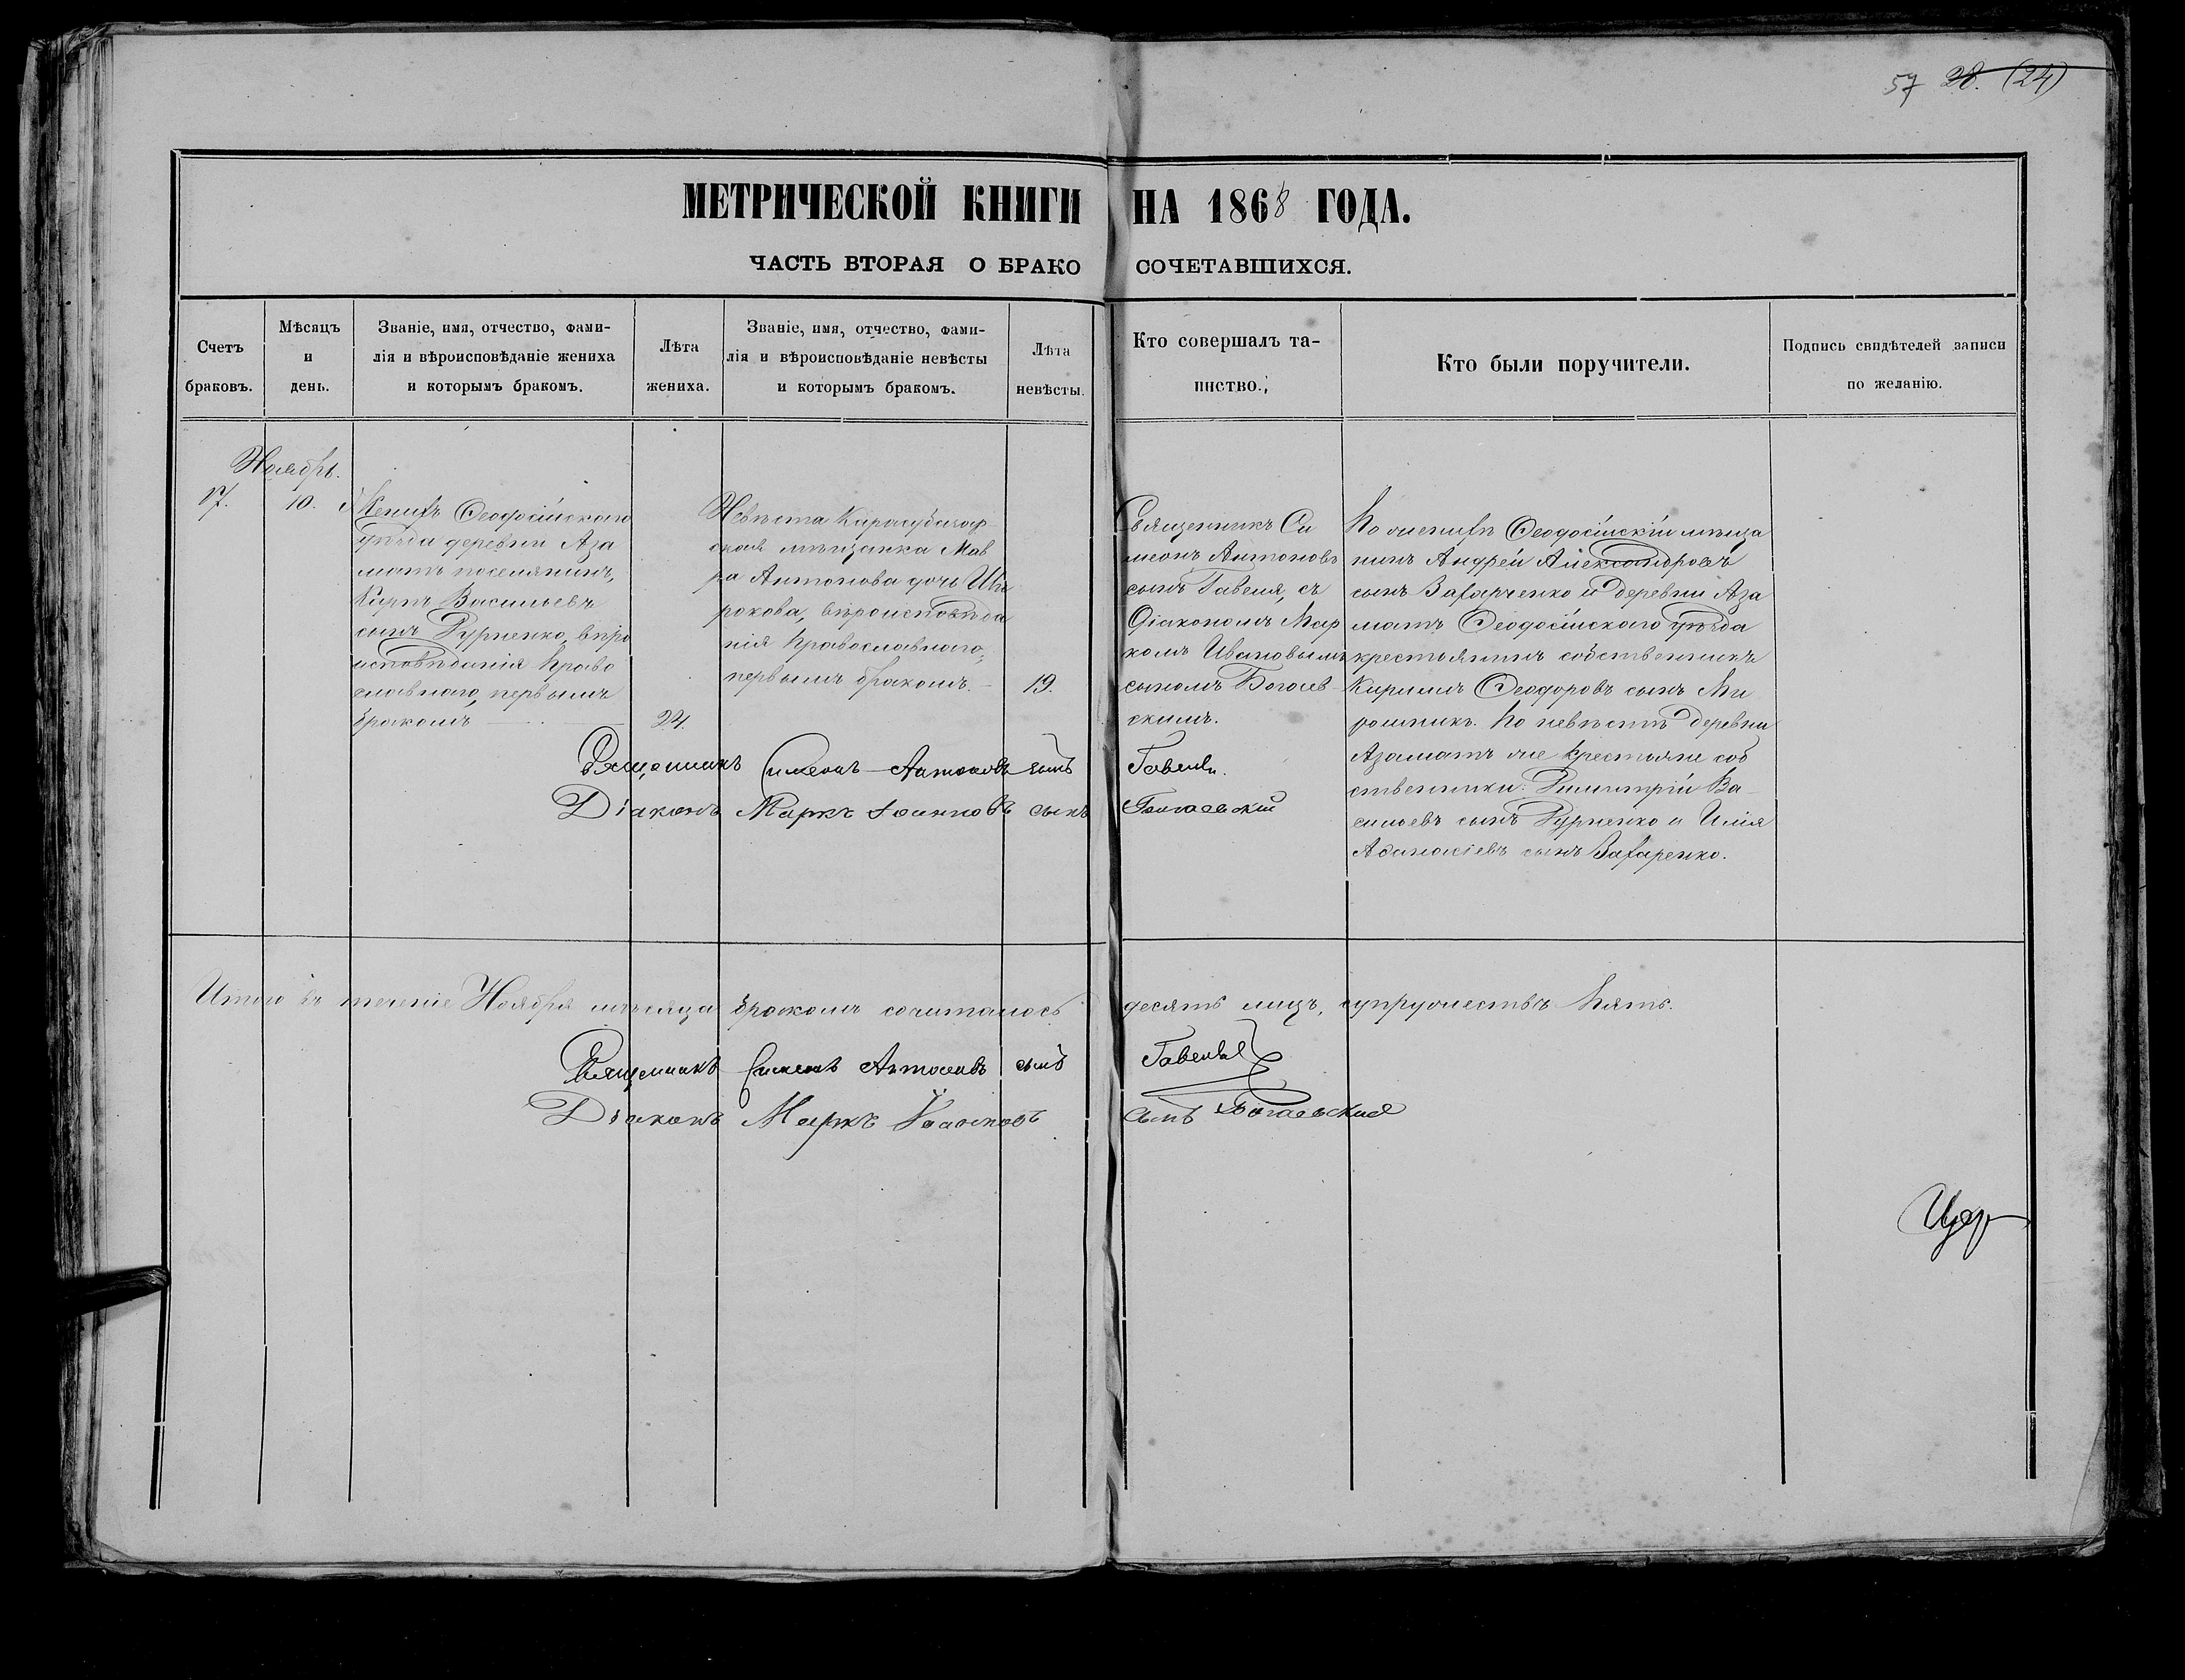 57 28. (24)
МЕТРИЧЕСКОЙ КНИГИ НА 1868 ГОДА.
ЧАСТЬ ВТОРАЯ О БРАКО СОЧЕТАВШИХСЯ.
Счетъ
браковъ.
Мѣсяцъ
и
день.
Званіе, имя, отчество, фами-
лія и вѣроисповѣданіе жениха
и которымъ бракомъ.
Лѣта
жениха.
Званіе, имя, отчество, фами-
лія и вѣроисповѣданіе невѣсты
и которымъ бракомъ.
Лѣта
невѣсты.
Кто совершалъ та-
инство.
Кто были поручители.
Подпись свидѣтелей записи
по желанію.
Ноябрь.
17.
10.
Женихъ Ѳеодосійскаго
уѣзда деревни Аза
матъ поселянинъ,
Карпъ Васильевъ
сынъ Дурненко, вѣро
исповѣданія право
славнаго, первымъ
бракомъ
24.
Невѣста Карасубазар
ская мѣщанка Мав
ра Антонова дочь Ши
рокова, вѣроисповѣда
нія православнаго,
первымъ бракомъ.
19.
Священникъ Си
меонъ Антоновъ
сынъ Гавеля, съ
Діакономъ Мар
комъ Ивановымъ
сыномъ Богаев-
скимъ.
По женихѣ Ѳеодосійскій мѣща
нинъ Андрей Александровъ
сынъ Захарченко и деревни Аза
матъ Ѳеодосійскаго уѣзда
крестьянинъ собственникъ
Кириллъ Ѳеодоровъ сынъ Ми
рошникъ. По невѣстѣ деревни
Азаматъ же крестьяне соб
ственники: Димитрій Ва-
сильевъ сынъ Дурненко и Илія
Аѳанасіевъ сынъ Захаренко.
Священникъ Симеонъ Антоновъ сынъ Гавеля.
Діаконъ Маркъ Іоанновъ сынъ Богаевскій
Итого въ теченіе Ноября мѣсяца бракомъ сочиталось десять лицъ, супружествъ пять.
Священникъ Симеонъ Антоновъ сынъ Гавеля
Діаконъ Маркъ Іоанновъ сынъ Богаевскій